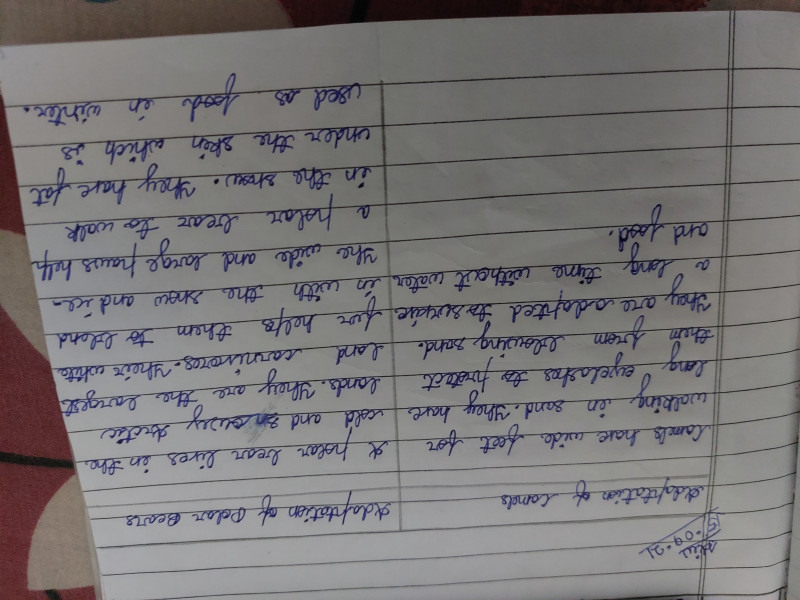 15.09.21
Adaptation of Camels
Camels have wide feet for
walking in sand. They have
long eyelashes to protect
them from blowing sand.
They are adapted to survive
a long time without water
and food.
Adaptation of Polar Bears
A polar bear lives in the
cold and snowy Arctic
lands. They are the largest
land carnivores. Their white
fur helps them to blend
in with the snow and ice.
The wide and large paws help
a polar bear to walk
in the snow. They have fat
under the skin which is
used as food in winter.